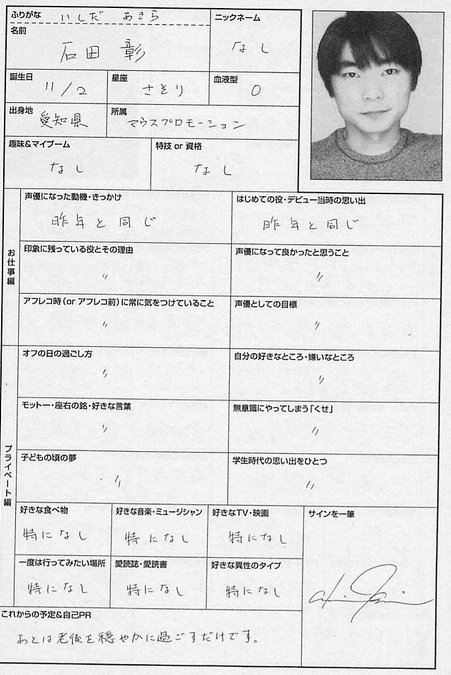 ふりがな いしだ あきら
ニックネーム
名前
石田 彰
なし
誕生日
星座
血液型
11/2
さそり
O
出身地
愛知県
所属
マウスプロモーション
趣味&マイブーム
なし
特技 or 資格
なし
お仕事編
声優になった動機・きっかけ
昨年と同じ
はじめての役・デビュー当時の思い出
昨年と同じ
印象に残っている役とその理由
〃
声優になって良かったと思うこと
〃
アフレコ時(or アフレコ前)に常に気をつけていること
〃
声優としての目標
〃
プライベート編
オフの日の過ごし方
〃
自分の好きなところ・嫌いなところ
〃
モットー・座右の銘・好きな言葉
〃
無意識にやってしまう「くせ」
〃
子どもの頃の夢
〃
学生時代の思い出をひとつ
〃
好きな食べ物
特になし
好きな音楽・ミュージシャン
特になし
好きなTV・映画
特になし
サインを一筆
一度は行ってみたい場所
特になし
愛読誌・愛読書
特になし
好きな異性のタイプ
特になし
これからの予定&自己PR
あとは老後を穏やかに過ごすだけです。